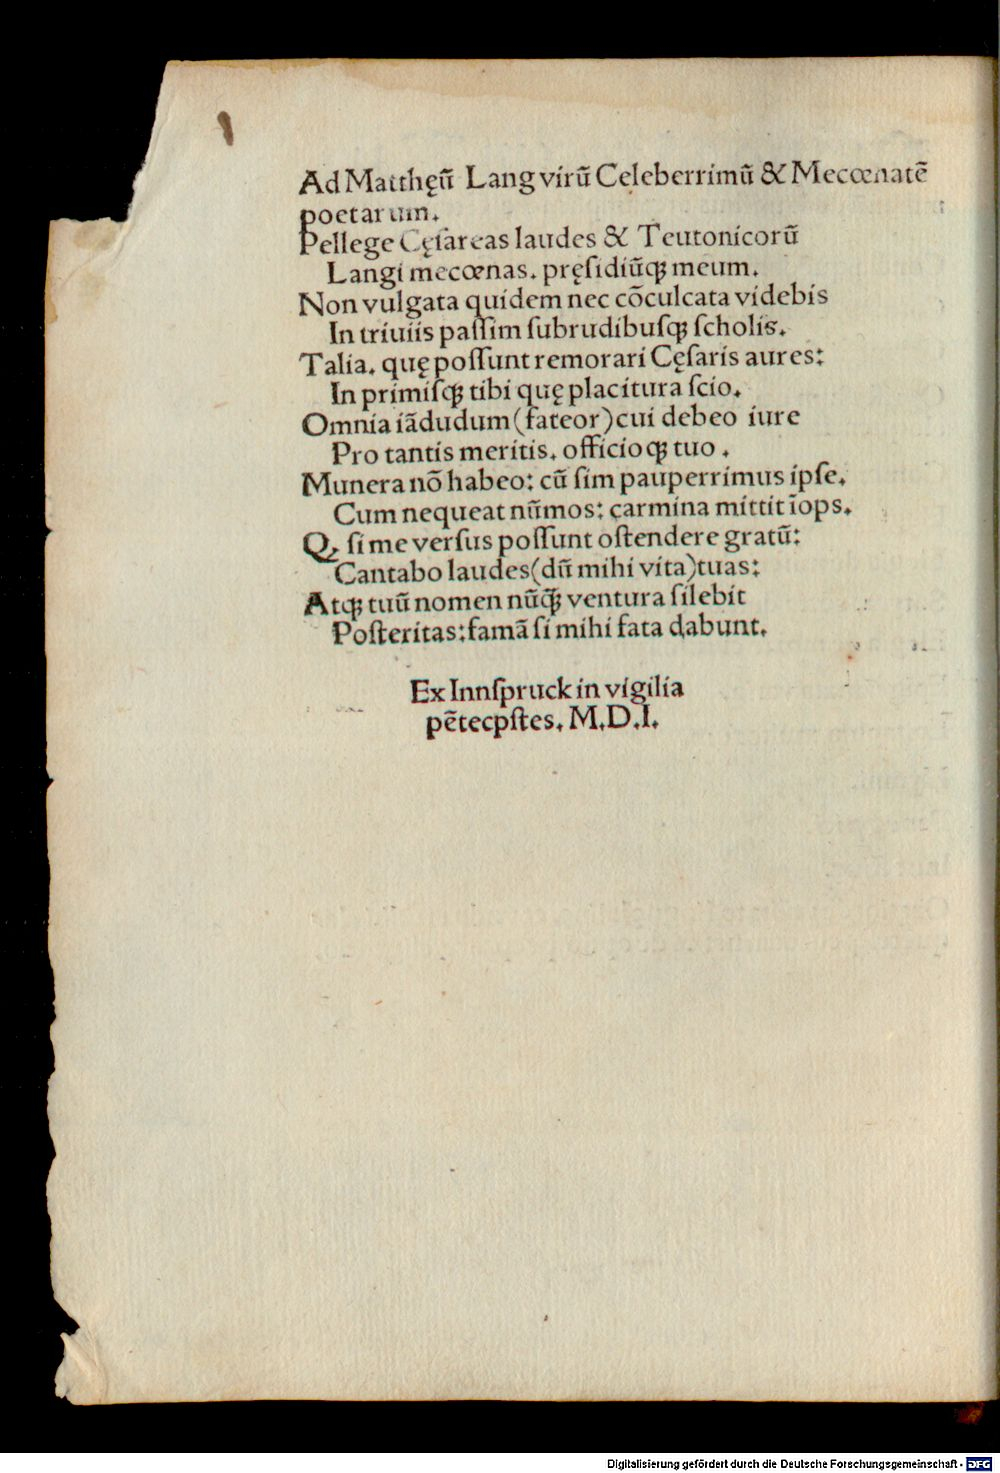 Ad Matthęū Lang virū Celeberrimū & Mecœnatē
poetarum.
Pellege Cęſareas laudes & Teutonicorū
Langi mecœnas. pręſidiūqꝫ meum.
Non vulgata quidem nec cōculcata videbis
In triuiis paſſim ſubrudibuſqꝫ ſcholis.
Talia. quę poſſunt remorari Cęſaris aures:
In primiſqꝫ tibi quę placitura ſcio.
Omnia iādudum (fateor) cui debeo iure
Pro tantis meritis. officioqꝫ tuo .
Munera nō habeo: cū ſim pauperrimus ipſe.
Cum nequeat nūmos: carmina mittit īops.
Qꝫ ſi me verſus poſſunt oſtendere gratū:
Cantabo laudes (dū mihi vita) tuas:
Atqꝫ tuū nomen nūq̄ꝫ ventura ſilebit
Poſteritas: famā ſi mihi fata dabunt.
Ex Innſpruck in vigilia
pētecpſtes. M.D.I.
Digitalisierung gefördert durch die Deutsche Forschungsgemeinschaft - DFG